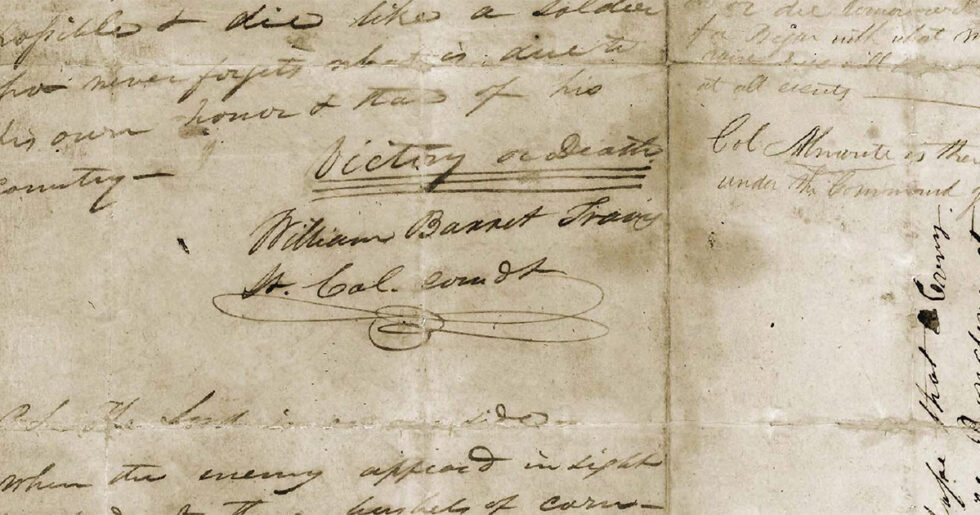 possible & die like a soldier
who never forgets what is due to
his own honor & that of his
country—
Victory or Death
William Barret Travis
Lt. Col. comdt
P.S. The Lord is on our side
When the enemy appeard in sight
bushels of corn—
or die
for Bejar with what
at all events
Col Almonte is the
under the Command
hope that Every